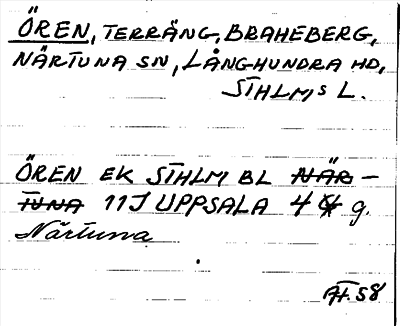 ÖREN, TERRÄNG, BRAHEBERG,
NÄRTUNA SN, LÅNGHUNDRA HD,
STHLMS L.
ÖREN EK STHLM BL NÄR-
TUNA 11J UPPSALA 4 g.
Närtuna
AI. 58